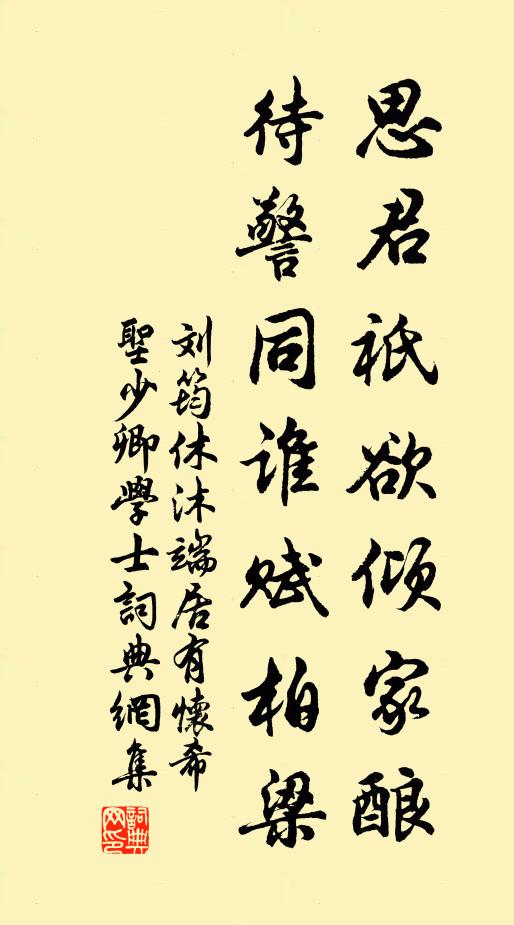 思君祇欲倾家酿
待警同谁赋柏梁
刘筠休沐端居有懷希
聖少卿學士詞典網集
詞典网印